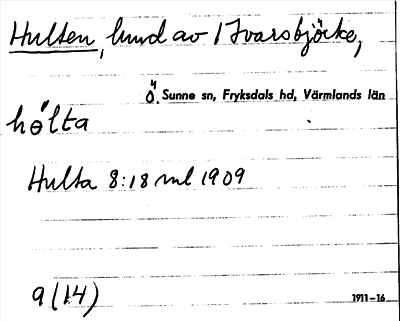 Hulten, lund av 1 Ivarsbjörke,
Ö. Sunne sn, Fryksdals hd, Värmlands län
hɵ́lta
Hulta 8:18 ml 1909
9(14)
1911–16